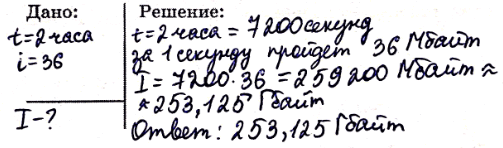 Дано:
t=2часа
i=36
I-?
Решение:
t=2часа = 7200секунд
за 1 секунду пройдет 36 Мбайт
I = 7200·36 = 259200 Мбайт ≈
≈ 253,125 Гбайт
Ответ: 253,125 Гбайт